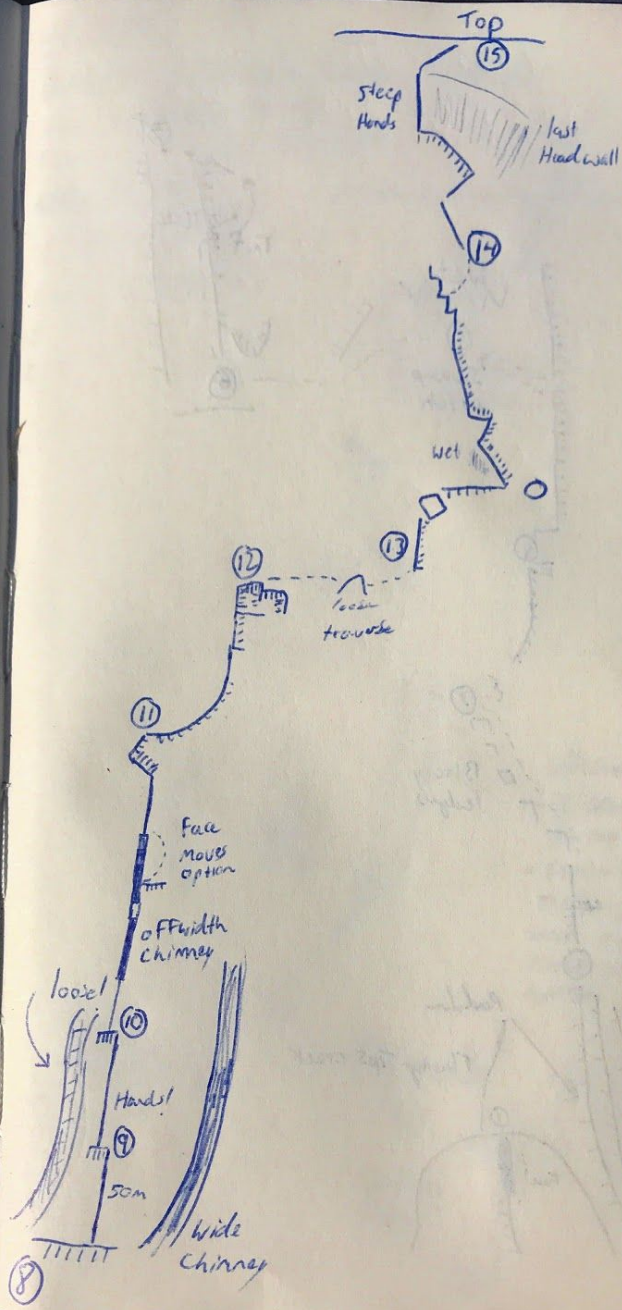 Top
15
Steep
Hands
last
Headwall
14
wet
13
12
loose
traverse
11
Face
moves
option
offwidth
Chimney
loose!
10
Hands!
9
50m
wide
Chimney
8